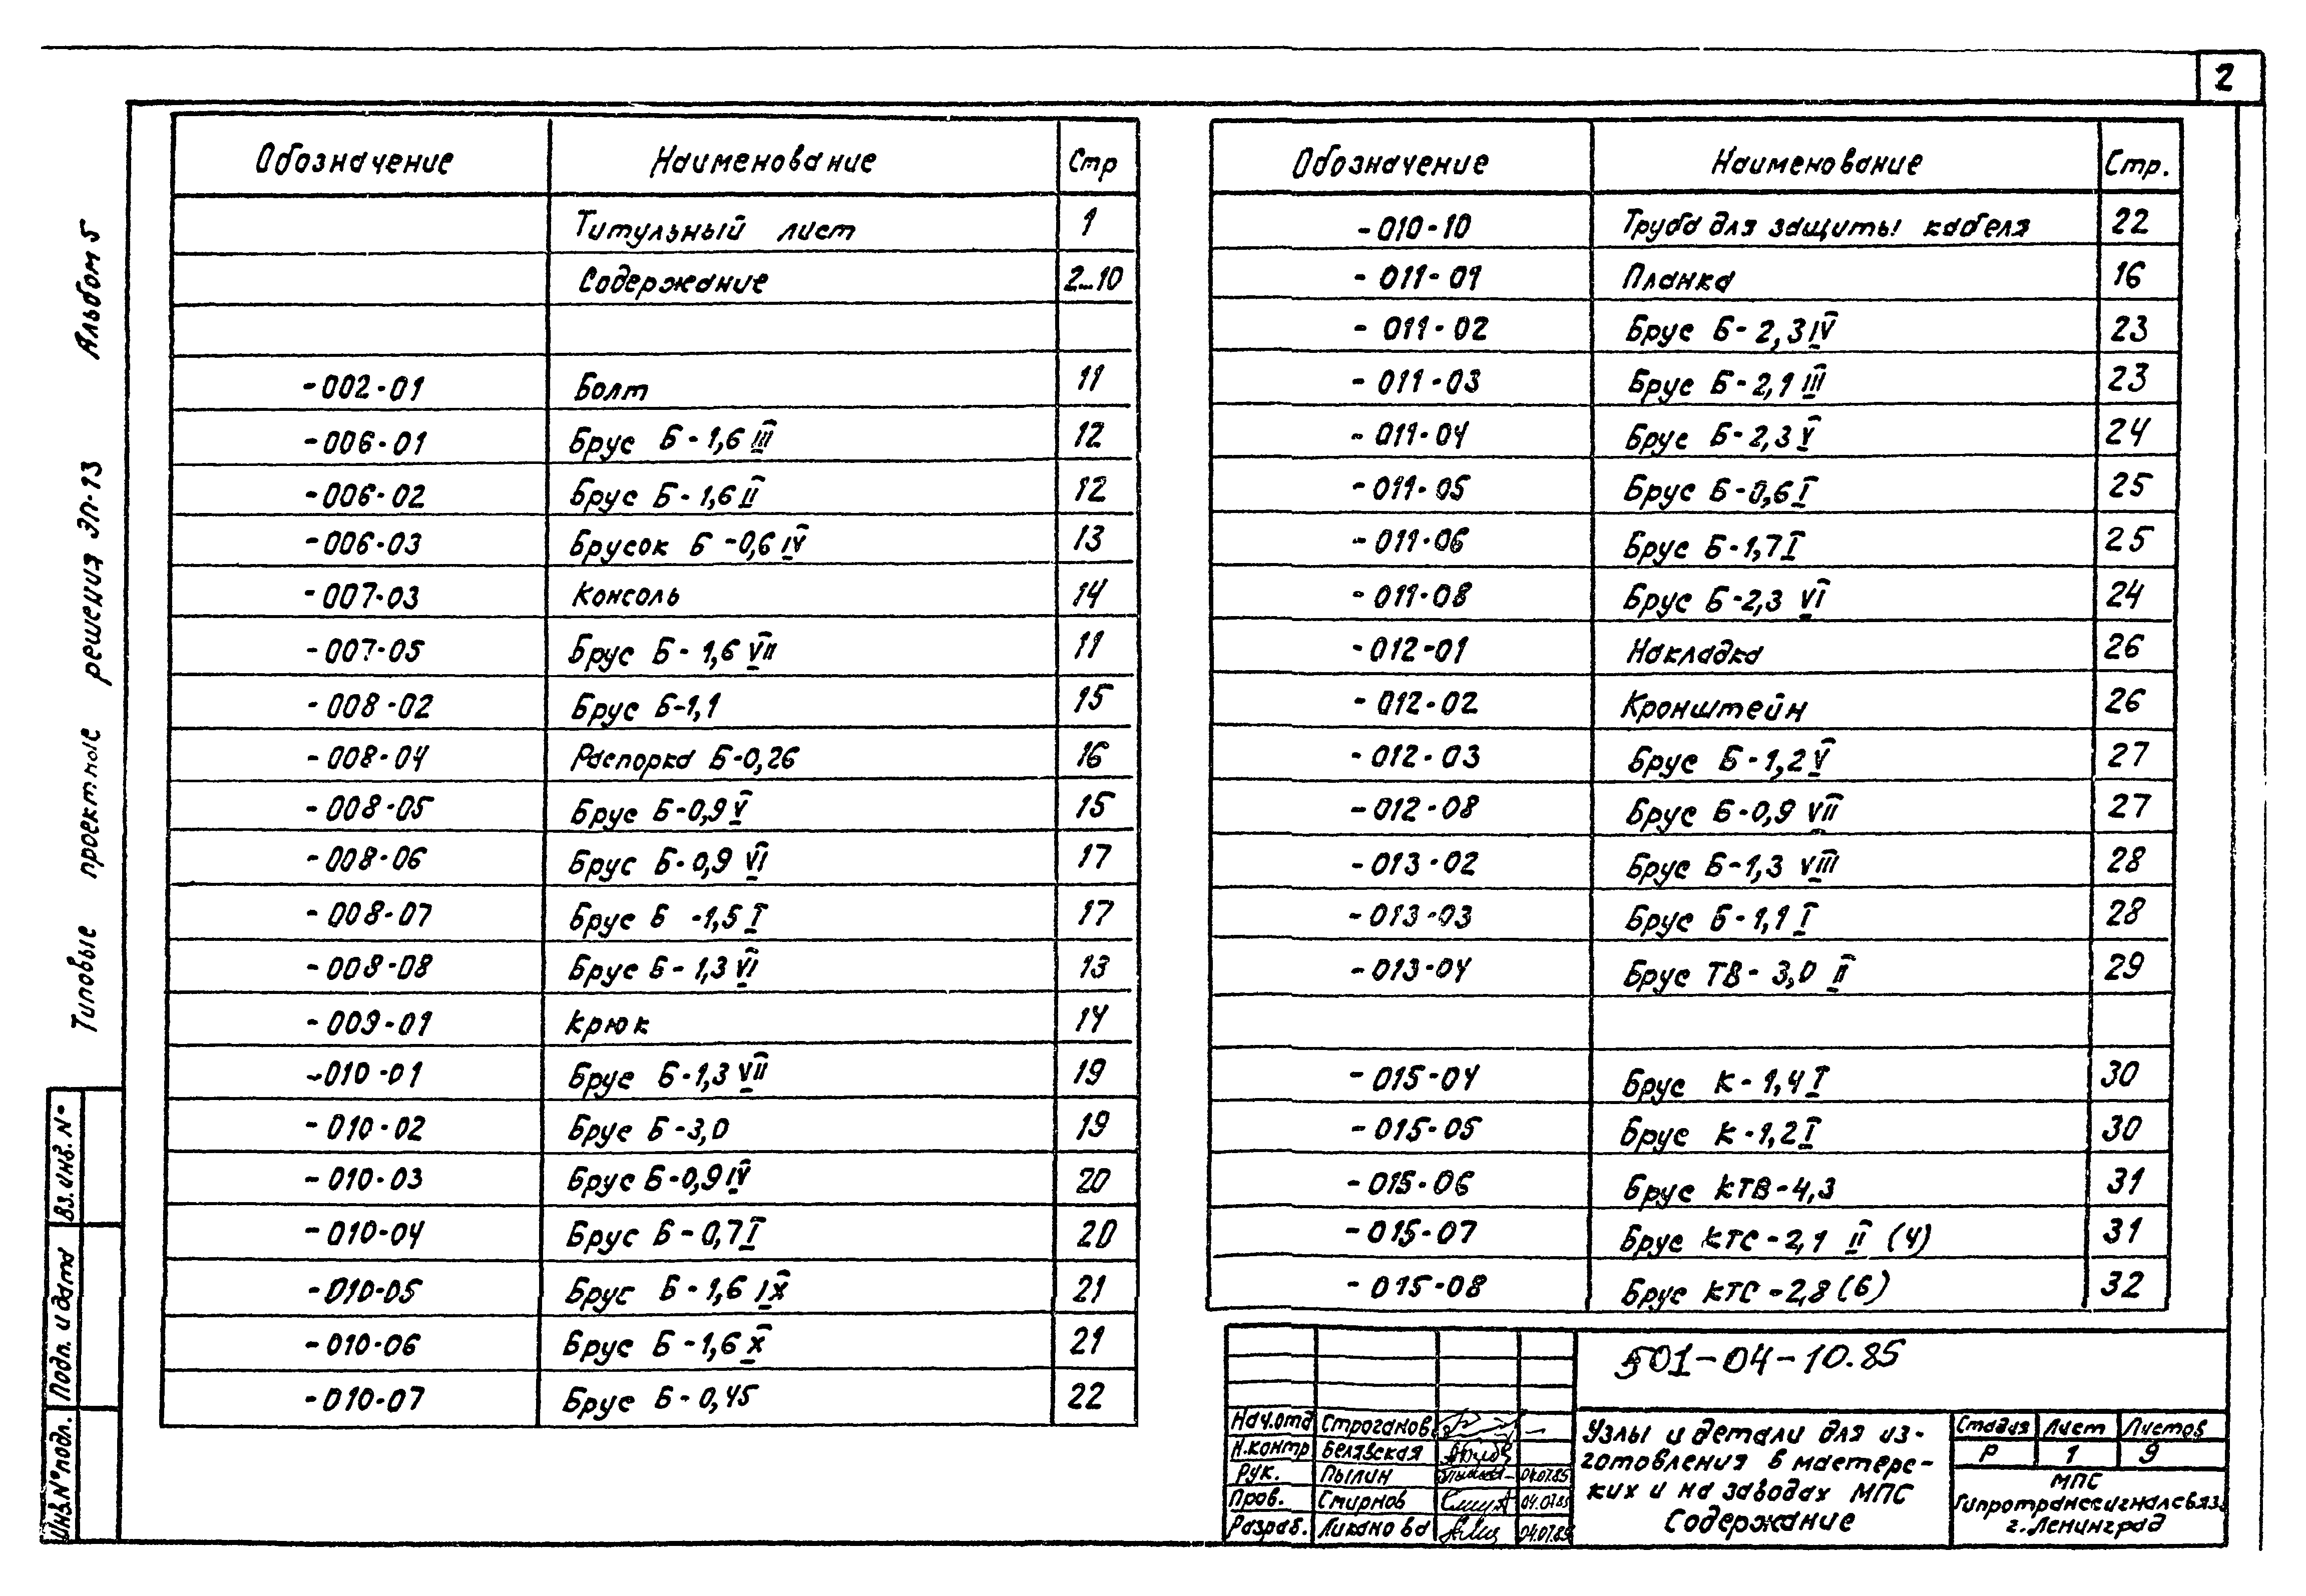 2
Альбом 5
Типовые проектные решения ЭП-13
Вз. инв. №
Подп. и дата
Инв. № подл.
Обозначение Наименование Стр
Титульный лист 1
Содержание 2...10
-002-01 Болт 11
-006-01 Брус Б-1,6 III 12
-006-02 Брус Б-1,6 II 12
-006-03 Брусок Б-0,6 IV 13
-007-03 Консоль 14
-007-05 Брус Б-1,6 VII 11
-008-02 Брус Б-1,1 15
-008-04 Распорка Б-0,26 16
-008-05 Брус Б-0,9 V 15
-008-06 Брус Б-0,9 VI 17
-008-07 Брус Б-1,5 I 17
-008-08 Брус Б-1,3 VI 13
-009-01 Крюк 14
-010-01 Брус Б-1,3 VII 19
-010-02 Брус Б-3,0 19
-010-03 Брус Б-0,9 IV 20
-010-04 Брус Б-0,7 I 20
-010-05 Брус Б-1,6 IX 21
-010-06 Брус Б-1,6 X 21
-010-07 Брус Б-0,45 22
Обозначение Наименование Стр.
-010-10 Труба для защиты кабеля 22
-011-01 Планка 16
-011-02 Брус Б-2,3 IV 23
-011-03 Брус Б-2,1 III 23
-011-04 Брус Б-2,3 V 24
-011-05 Брус Б-0,6 I 25
-011-06 Брус Б-1,7 I 25
-011-08 Брус Б-2,3 VI 24
-012-01 Накладка 26
-012-02 Кронштейн 26
-012-03 Брус Б-1,2 V 27
-012-08 Брус Б-0,9 VII 27
-013-02 Брус Б-1,3 VIII 28
-013-03 Брус Б-1,1 I 28
-013-04 Брус ТВ-3,0 II 29
-015-04 Брус К-1,4 I 30
-015-05 Брус К-1,2 I 30
-015-06 Брус КТВ-4,3 31
-015-07 Брус КТС-2,1 II (4) 31
-015-08 Брус КТС-2,8 (6) 32
501-04-10.85
Нач.отд Строганов
Н.контр Белявская
Рук. Пылин 04.07.85
Пров. Смирнов 04.07.85
Разраб. Ликанова 04.07.85
Узлы и детали для из-
готовления в мастерс-
ких и на заводах МПС
Содержание
Стадия Лист Листов
Р 1 9
МПС
Гипротранссигналсвязь
г. Ленинград